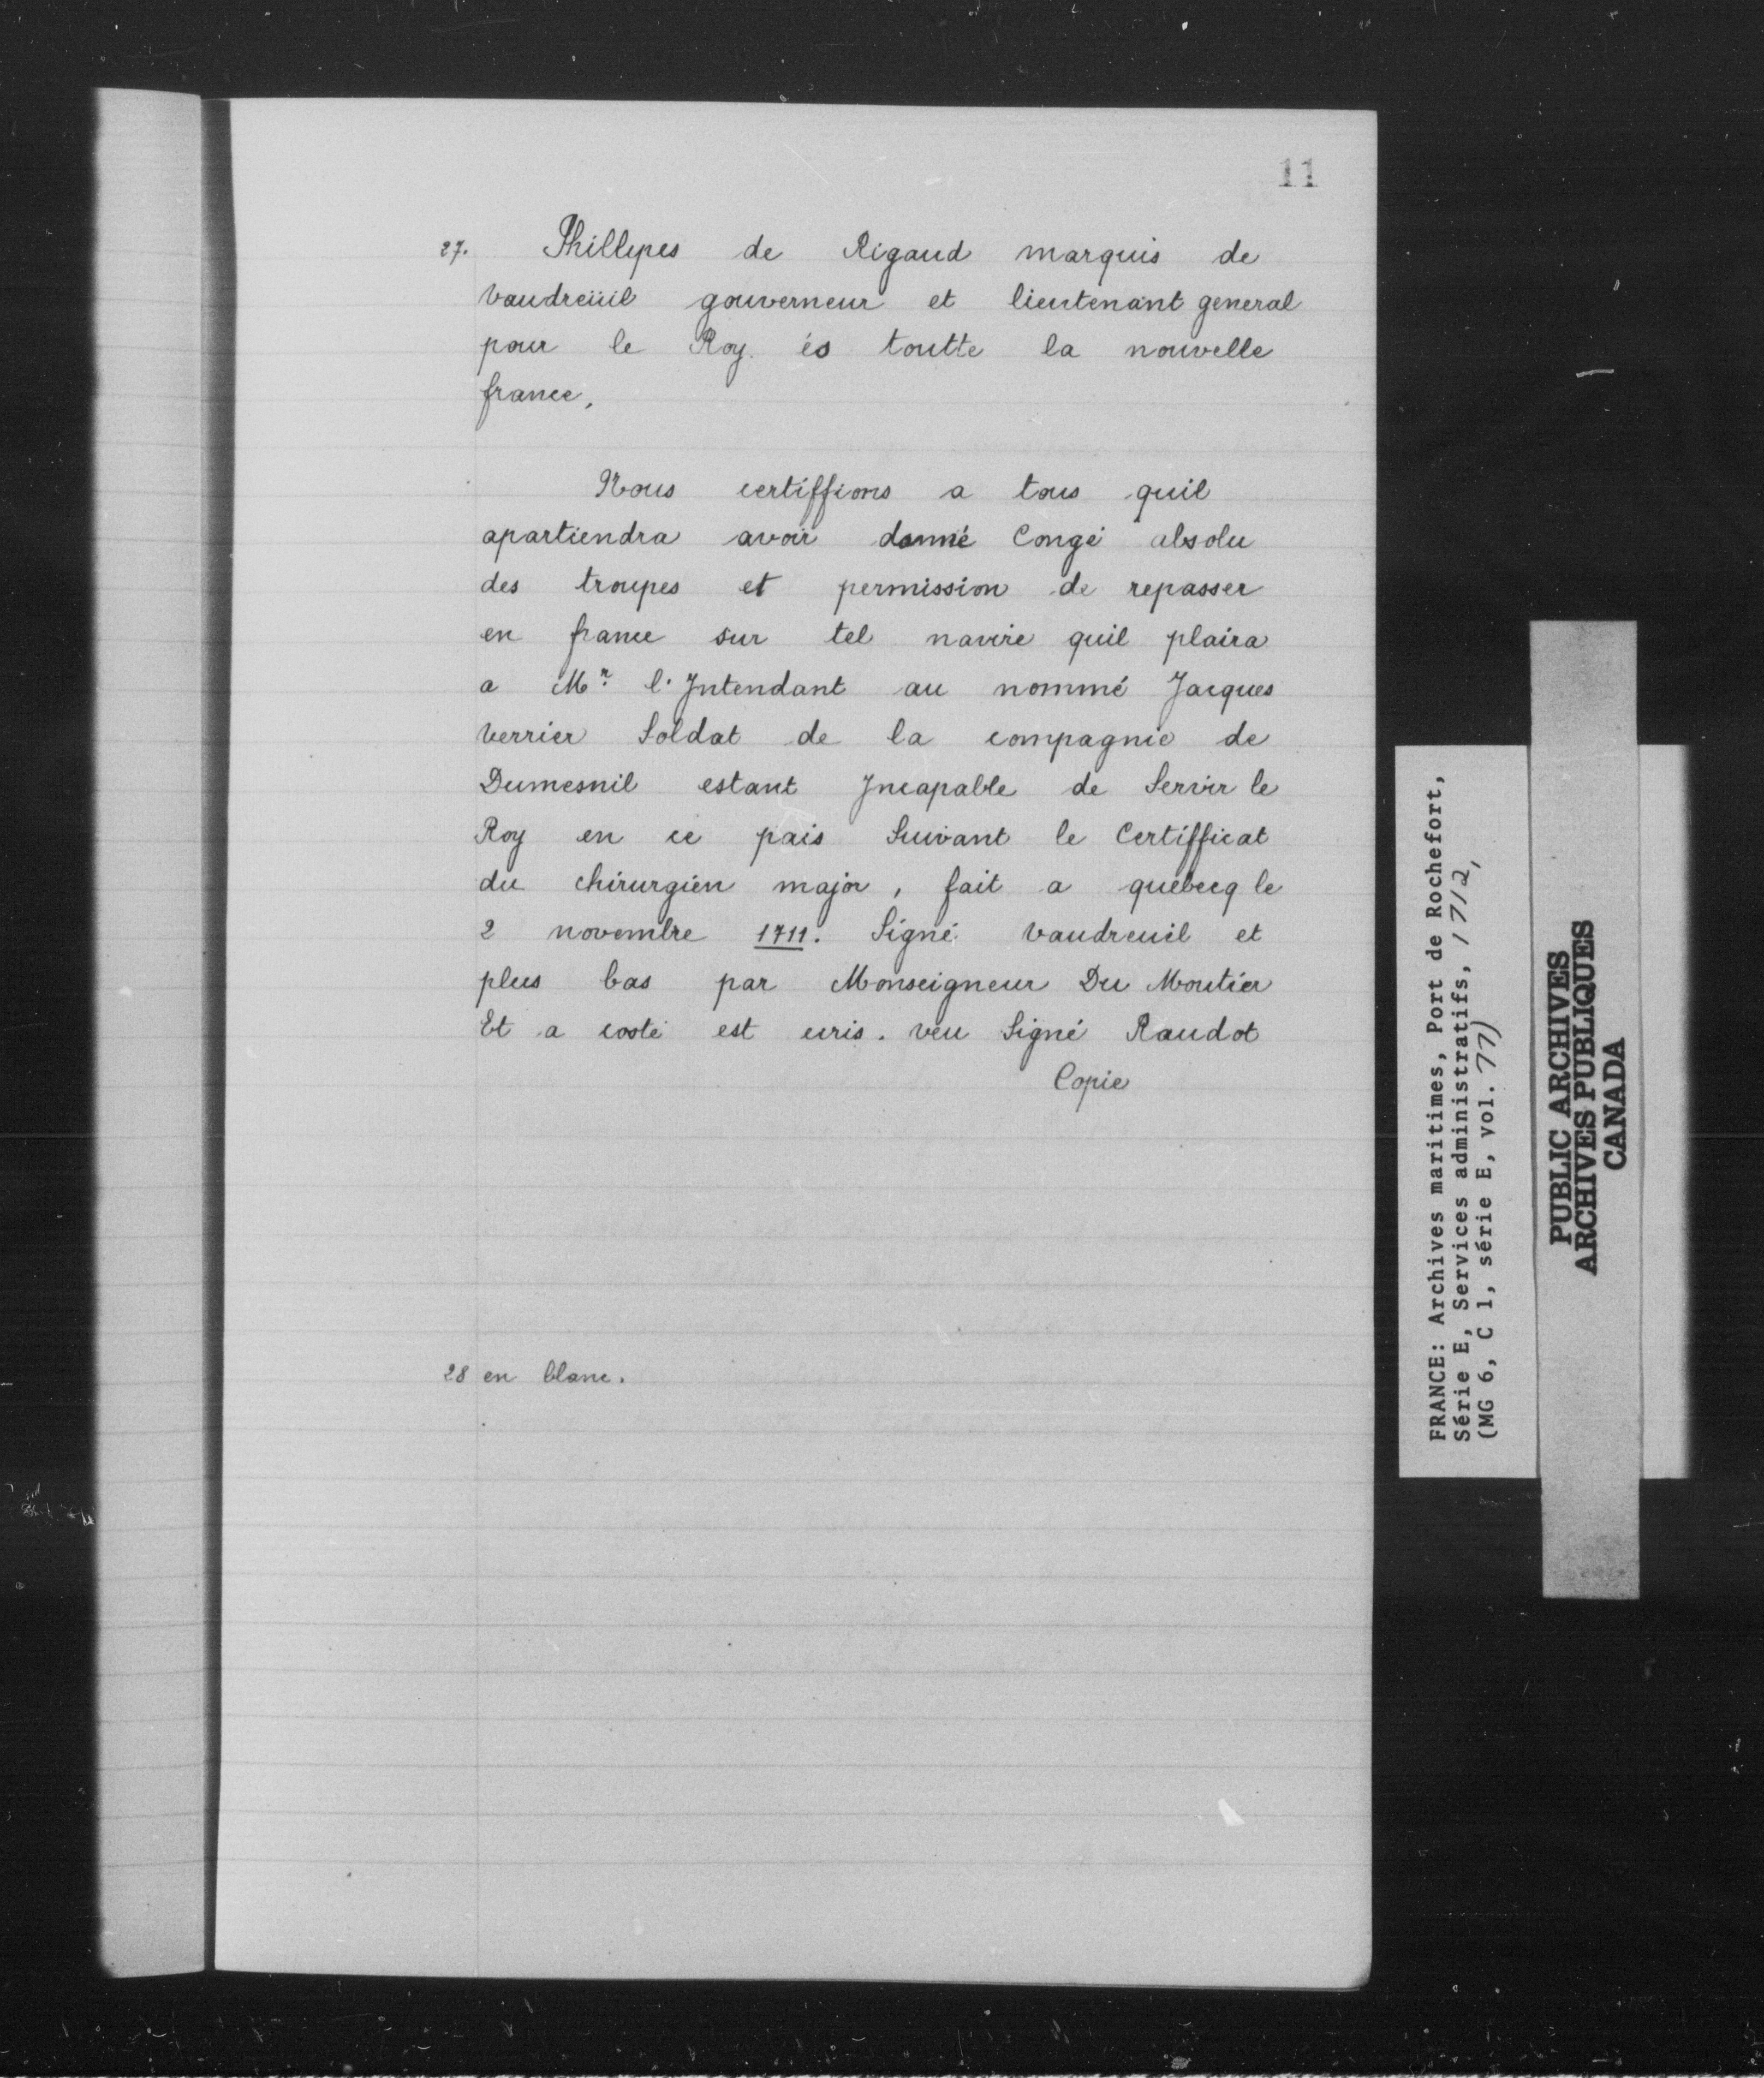 11
27. Phillipes de Rigaud marquis de
vaudreüil gouverneur et lieutenant general
pour le Roy és toutte la nouvelle
france,
Nous certiffions a tous quil
apartiendra avoir donné Congé absolu
des troupes et permission de repasser
en france sur tel navire quil plaira
a Mr. l'Intendant au nommé Jacques
verrier Soldat de la compagnie de
Dumesnil estant Incapable de Servir le
Roy en ce pais Suivant le Certifficat
du chirurgien major, fait a quebecq le
2 novembre 1711. Signé vaudreuil et
plus bas par Monseigneur Du Moutier
Et a costé est euris. veu Signé Raudot
Copie
28 en blanc.
FRANCE: Archives maritimes, Port de Rochefort,
Série E, Services administratifs, 1712,
(MG 6, C 1, série E, vol. 77)
PUBLIC ARCHIVES
ARCHIVES PUBLIQUES
CANADA